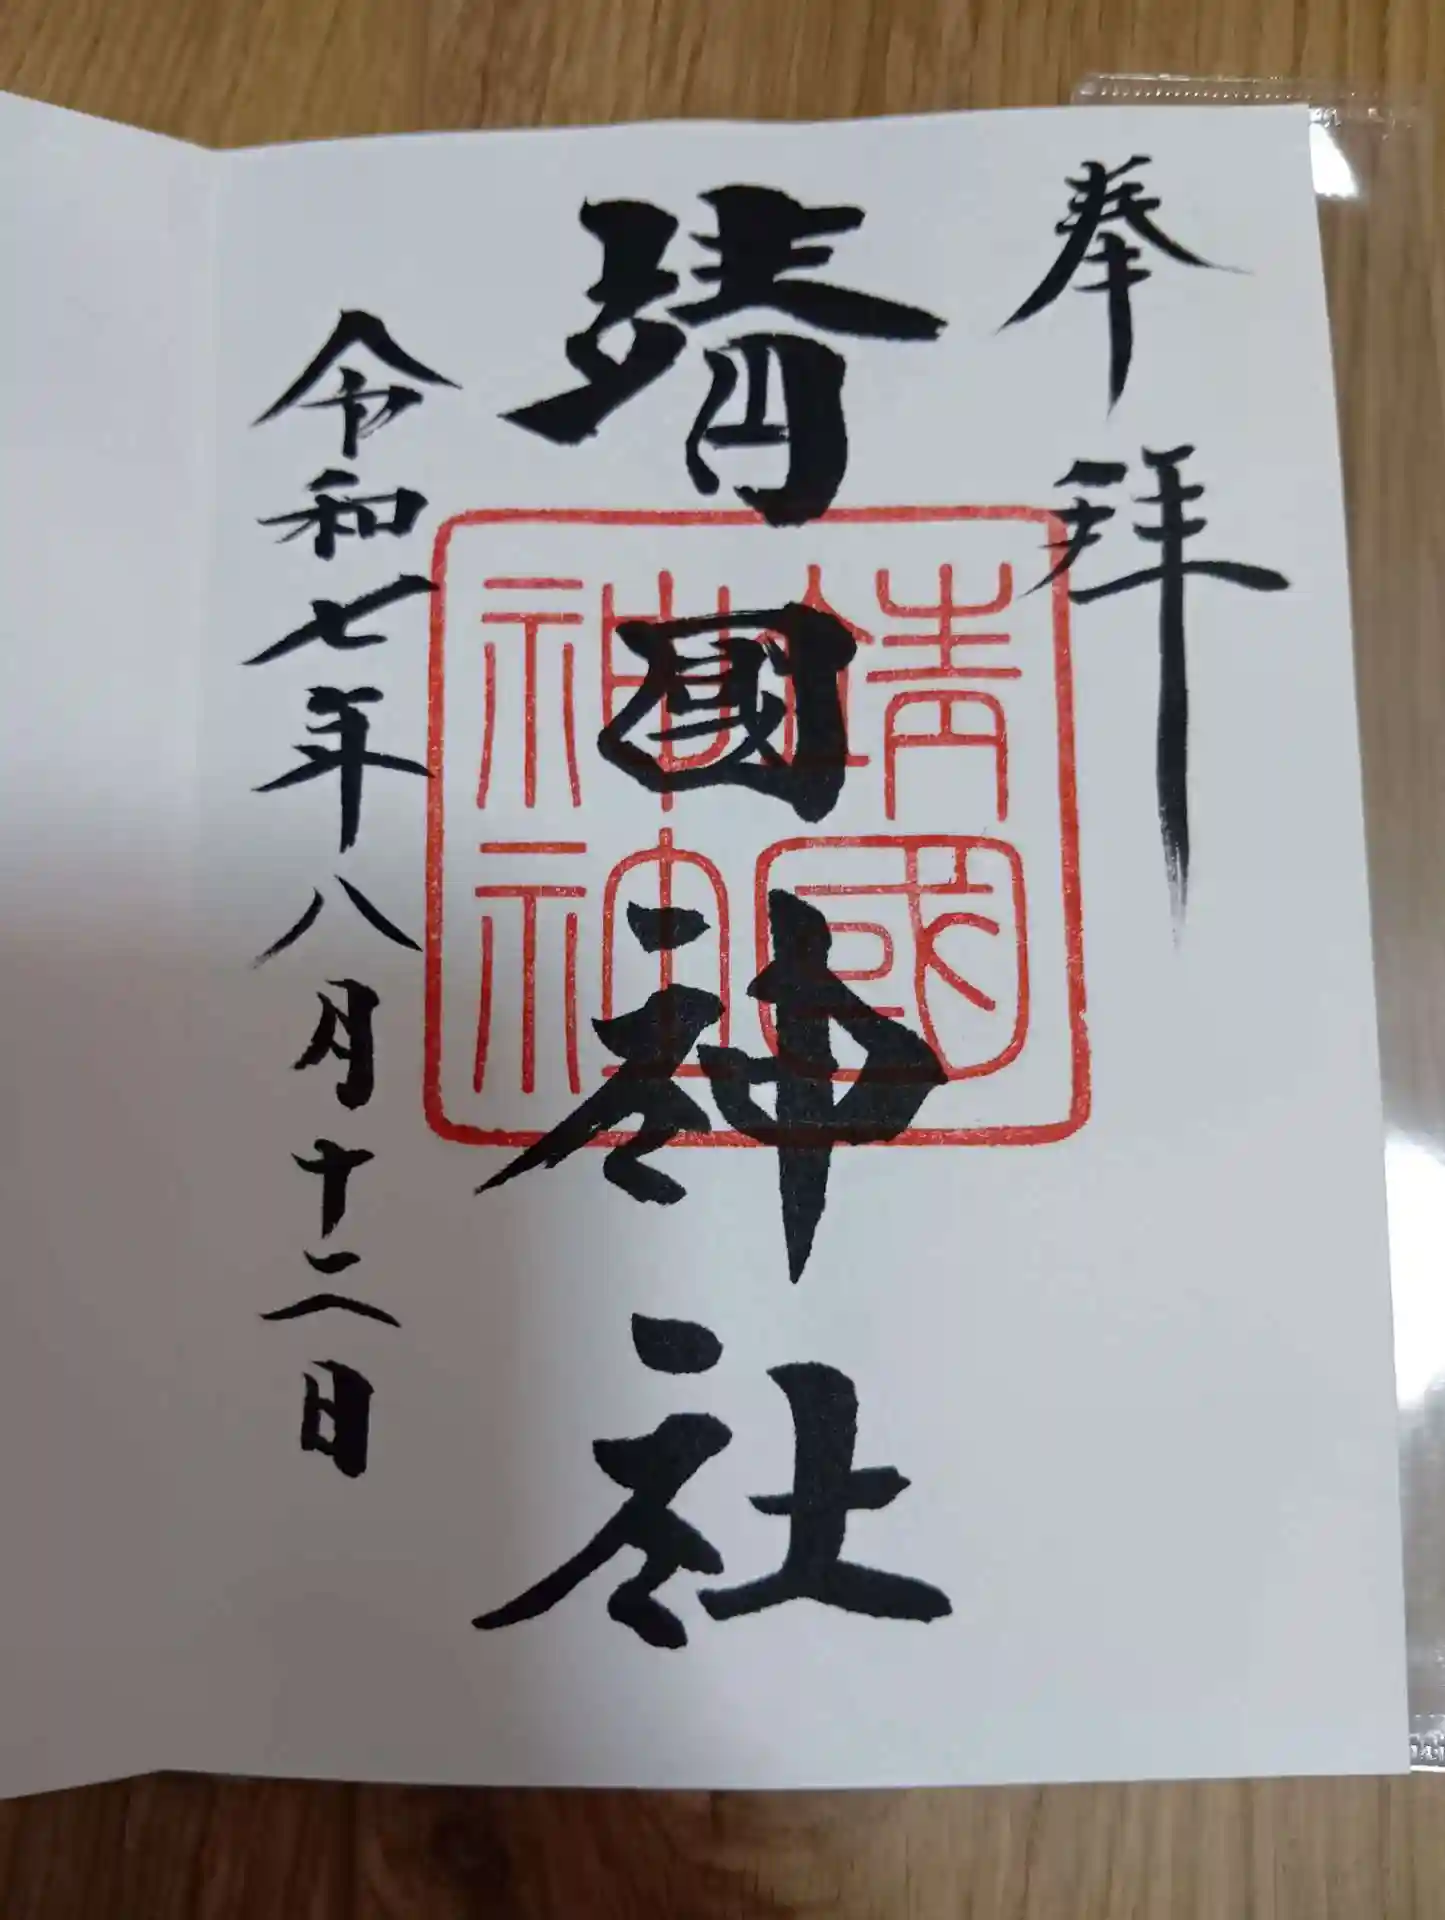 奉拝
靖國神社
靖國
神社
令和七年八月十二日